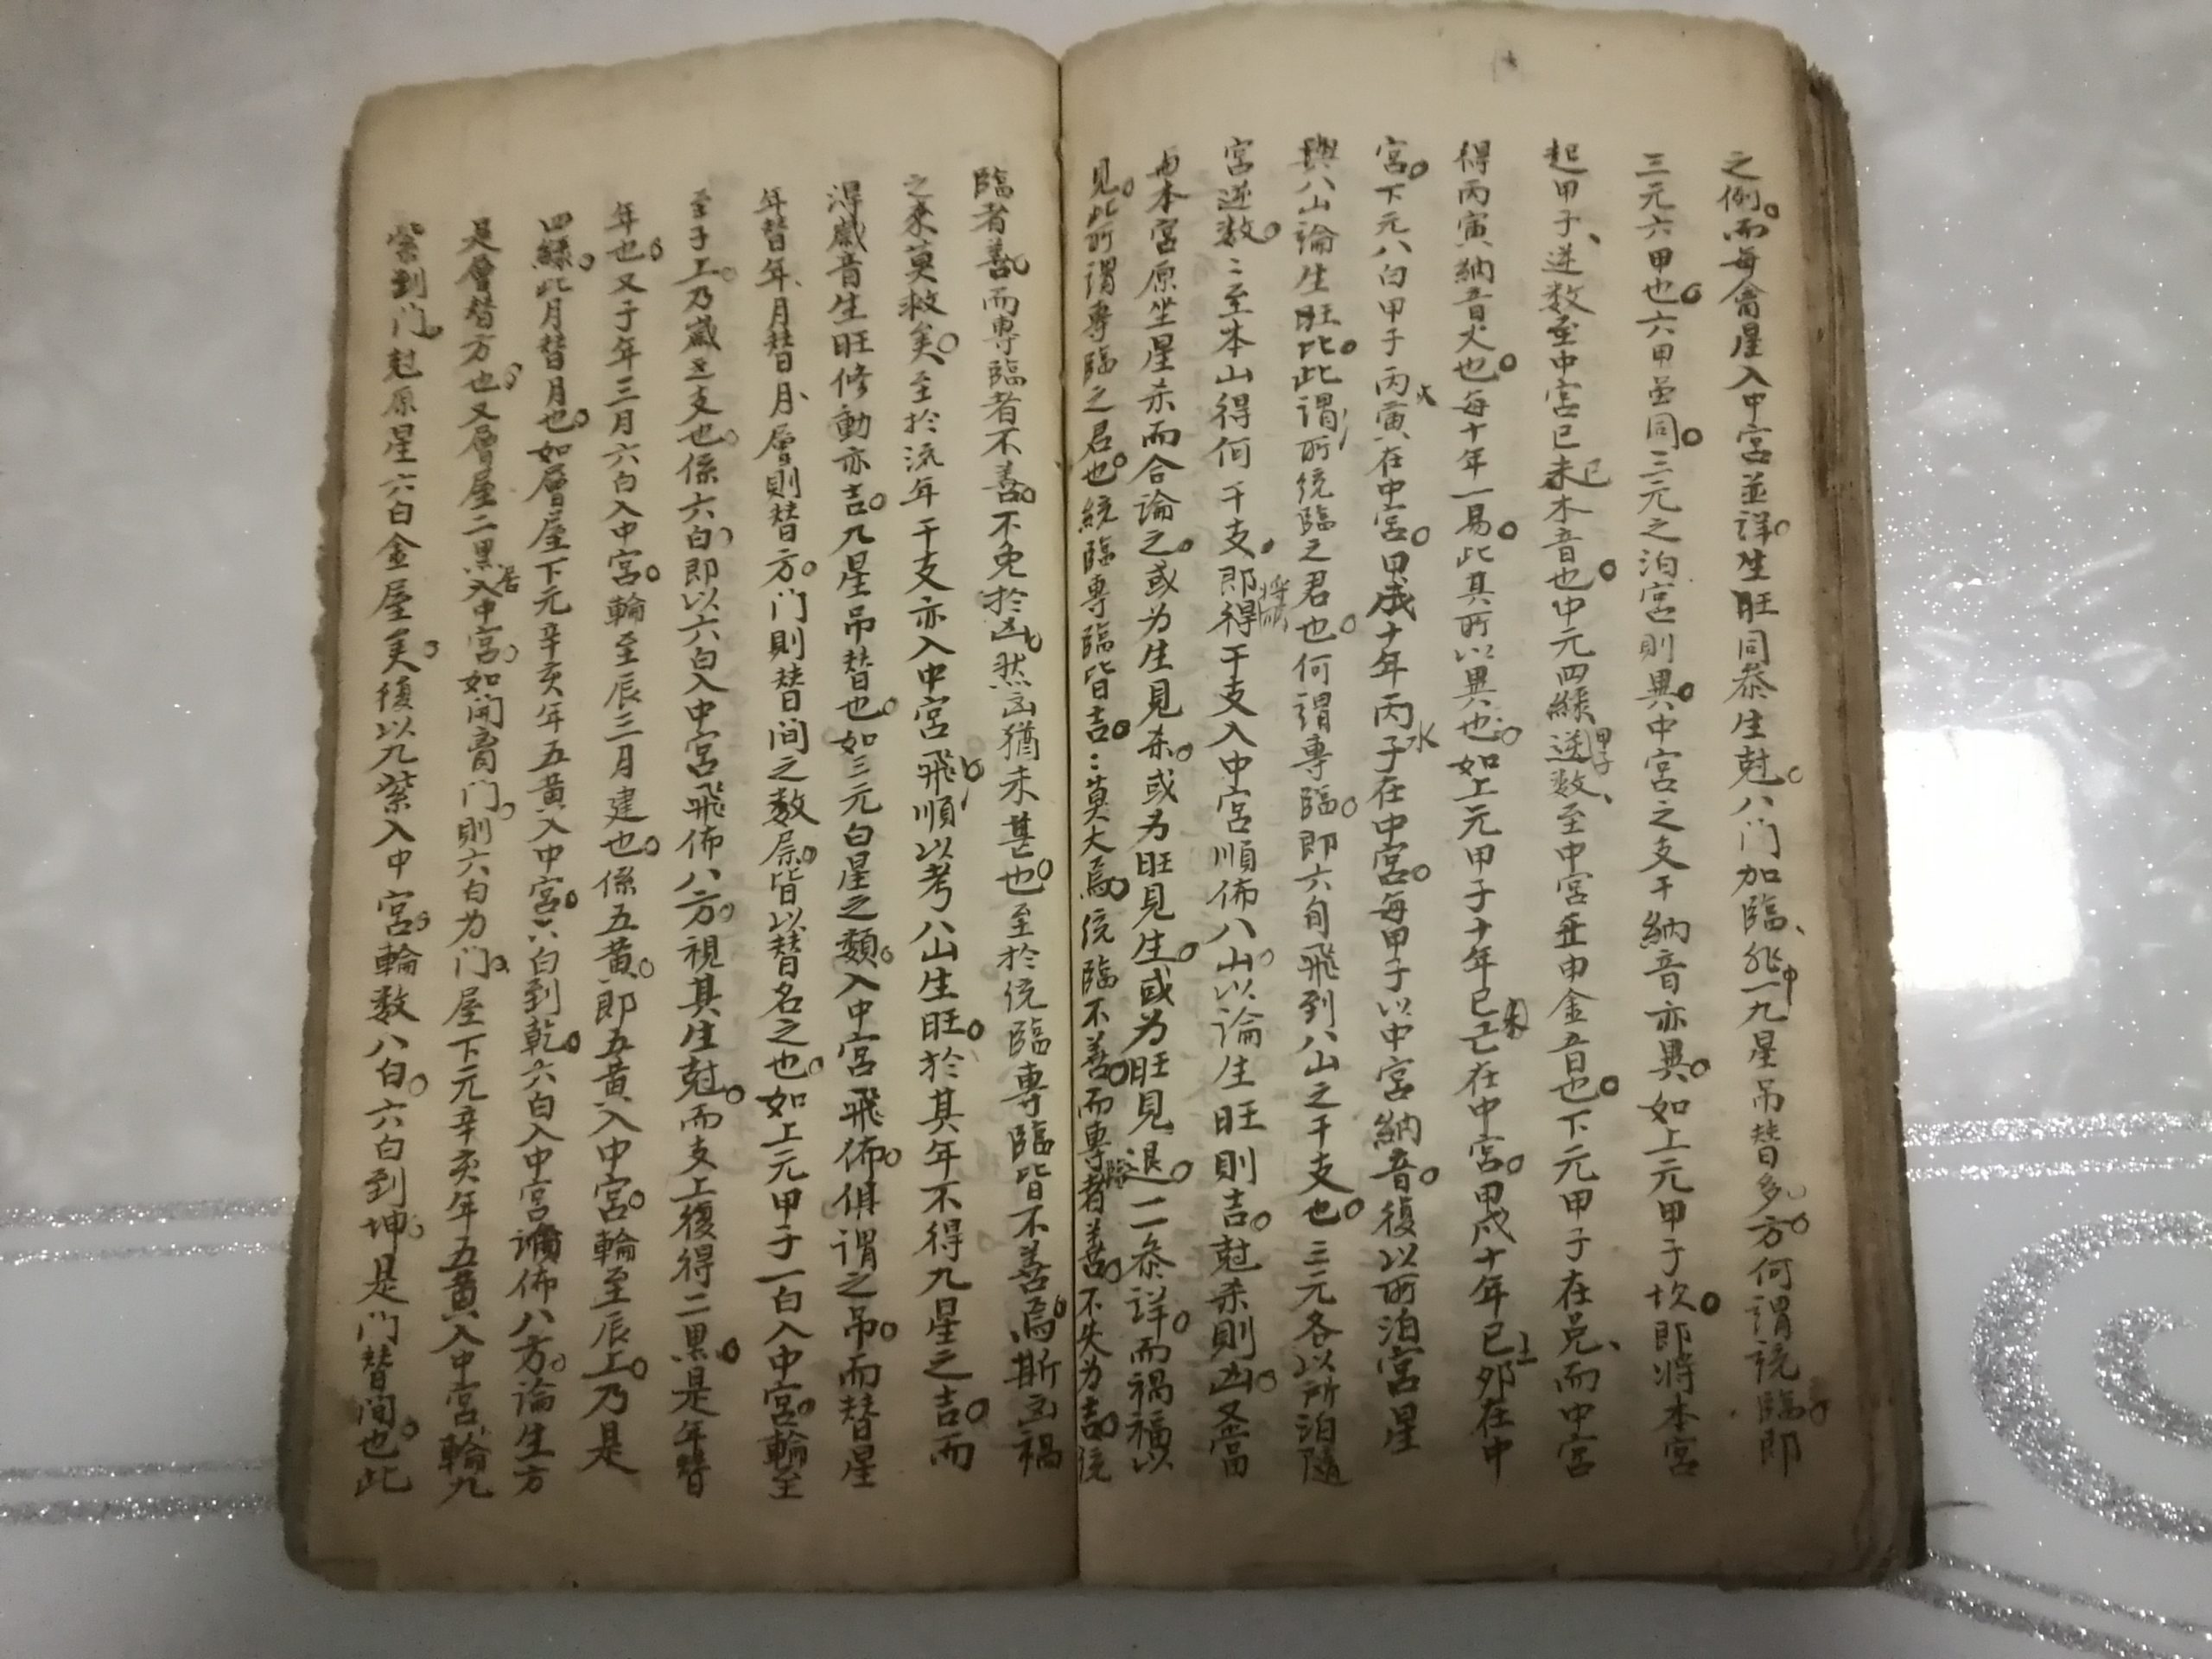 之例。而每會星入中宮並詳。生旺同叅生尅。八门加臨、飛一九星吊替多方。何謂統臨。即
三元六甲也。六甲虽同。三元之泊宮則異。中宮之支干納音亦異。如上元甲子坎。即將本宮
起甲子、逆数至中宮已木音也。中元四綠逆数、至中宮壬申金音也。下元甲子在兑、而中宮
得丙寅納音火也。每十年一易。此其所以異也。如上元甲子十年己巳在中宮。甲戌十年己夘在中
宮。下元八白甲子丙寅在中宮。甲戌十年丙子在中宮。每甲子以中宮納音。復以所泊宮星
與八山論生旺比。此謂所統臨之君也。何謂專臨。即六旬飛到八山之干支也。三元各以所泊隨
宮逆数。：至本山得何干支。即得干支入中宮順佈八山。以論生旺則吉。尅杀則凶。又當
与本宮原坐星杀而合論之。或为生見杀。或为旺見生。或为旺見退。一一叅詳。而禍福以
見。此所谓專臨之君也。統臨專臨皆吉。：莫大焉。统臨不善。而專者善。不失为吉。统
臨者善。而專臨者不善。不免於凶。然凶猶未甚也。至於统臨專臨皆不善焉。斯凶禍
之來莫救矣。至於流年干支亦入中宮飛順以考八山生旺。於其年不得九星之吉。而
淂歲音生旺修動亦吉。凡星吊替也。如三元白星之類。入中宮飛佈。俱谓之吊。而替星
年替年、月替月、層則替方。门則替间之数层。皆以替名之也。如上元甲子一白入中宮。輪至
至子上。乃歲之支也。係六白。即以六白入中宮飛佈八方。視其生尅。而支上復得二黑。是年替
年也。又子年三月六白入中宮。輪至辰三月建也。係五黄。即五黄入中宮。輪至辰上。乃是
四綠。此月替月也。如層屋下元辛亥年五黄入中宮。六白到乾。六白入中宮佈八方。論生方
是層替方也。又層屋二黑入中宮。如開音门。則六白为门。屋下元辛亥年五黄入中宮、輪九
紫到门。尅原星六白金屋矣。復以九紫入中宮。輪数八白。六白到坤。是门替间也。此